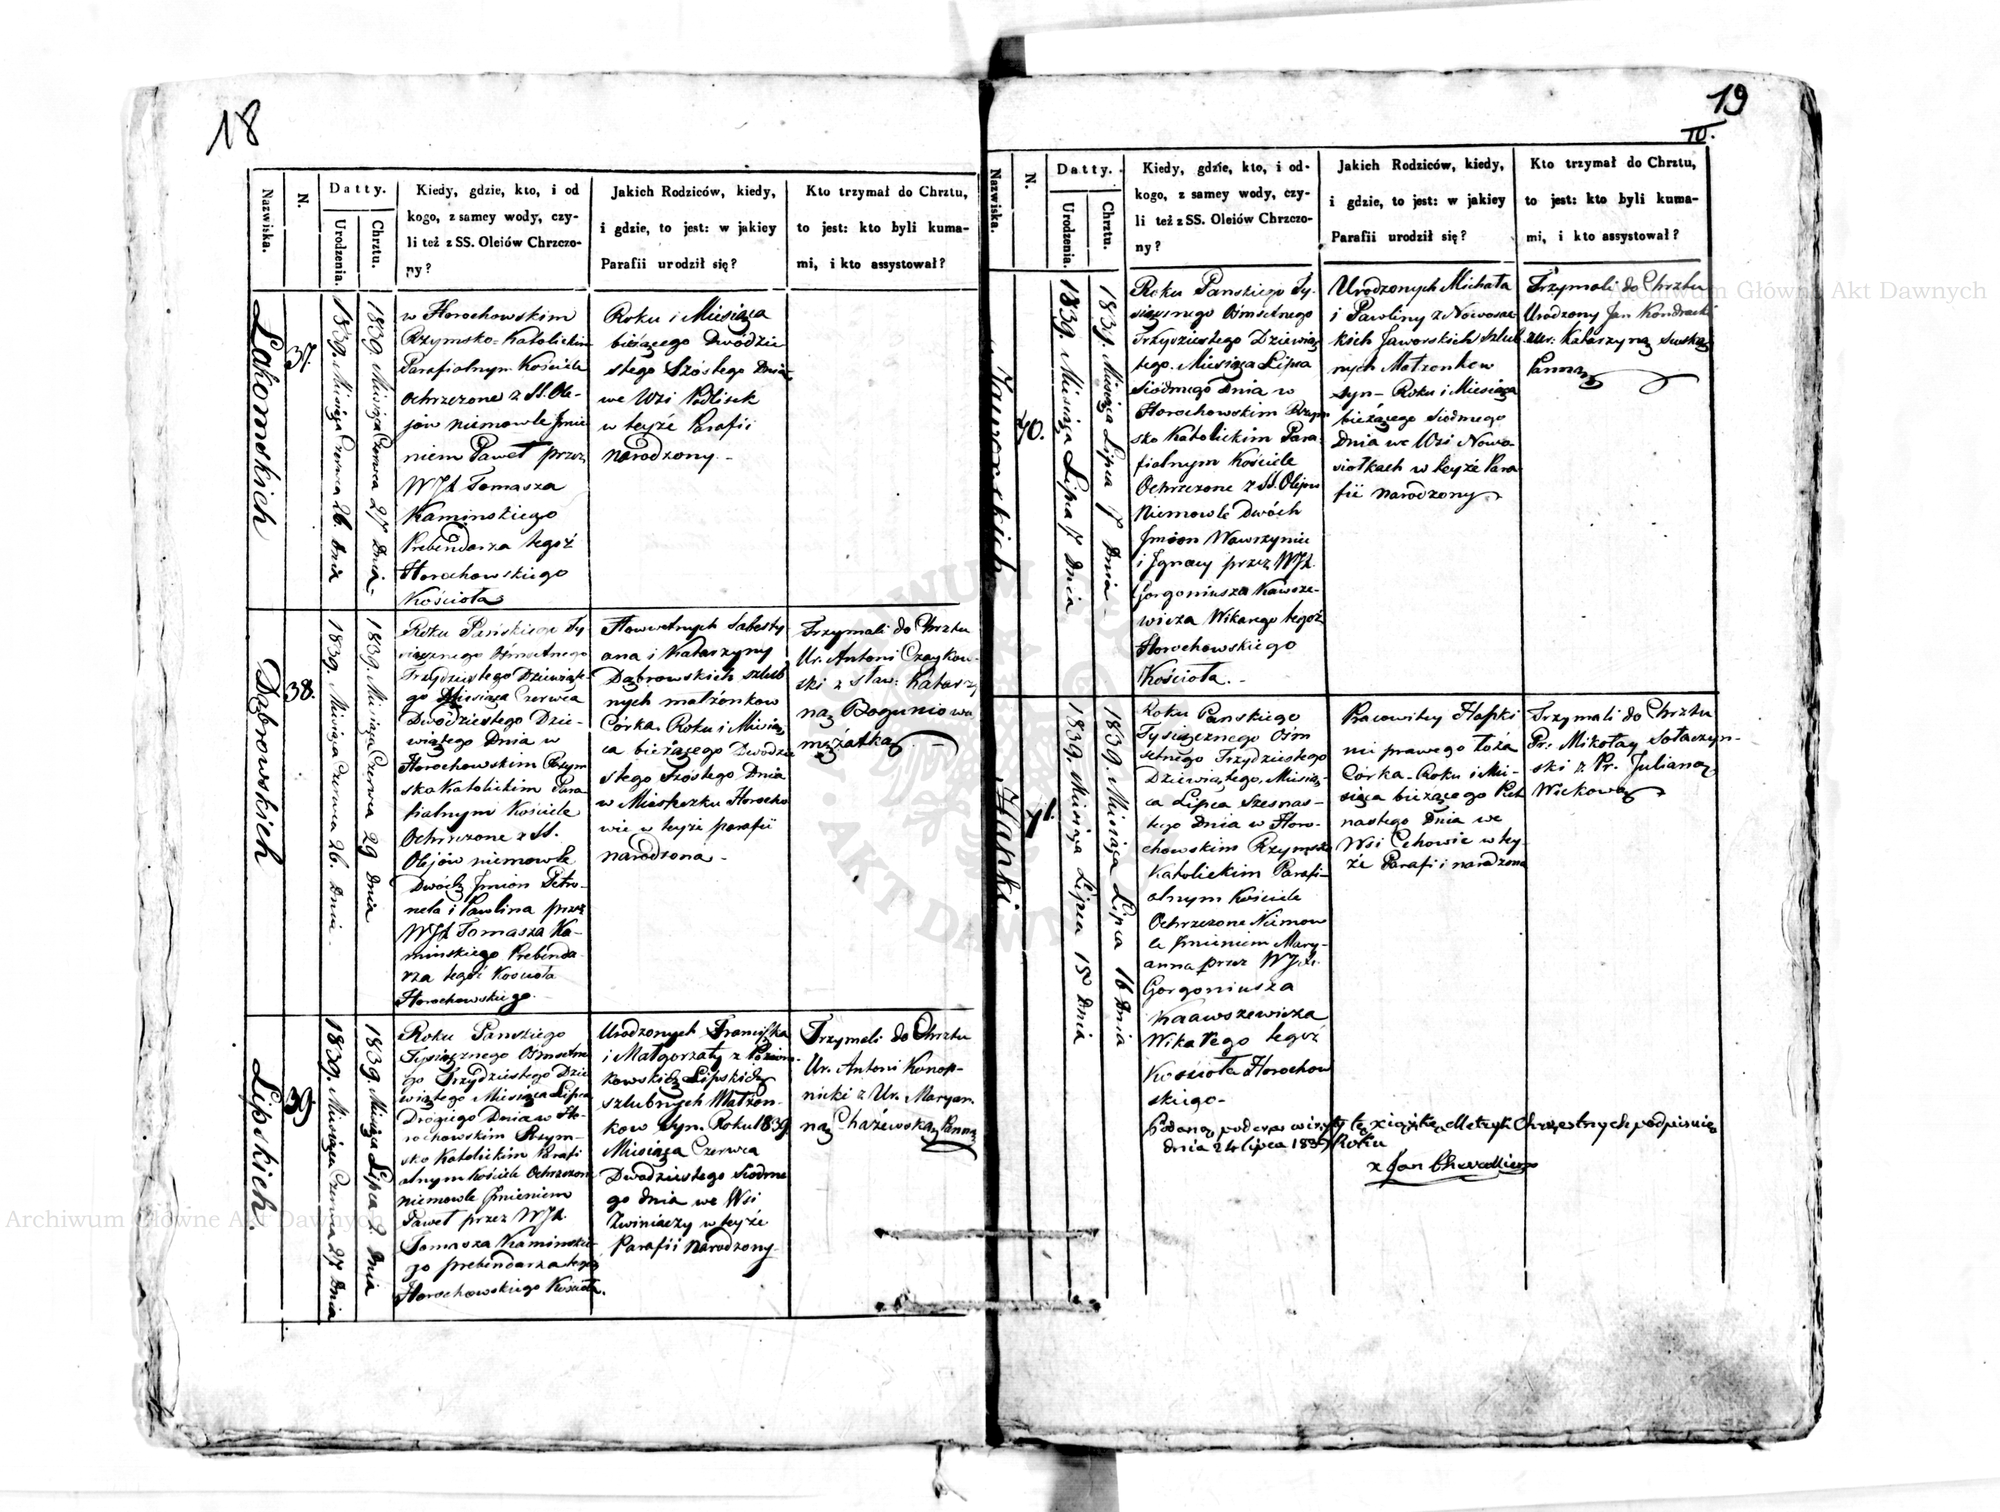 18
Nazwiska.
N.
Datty.
Urodzenia.
Chrztu.
Kiedy, gdzie, kto, i od
kogo, z samey wody, czy-
li też z SS. Oleiów Chrzczo-
ny?
Jakich Rodziców, kiedy,
i gdzie, to jest: w jakiey
Parafii urodził się?
Kto trzymał do Chrztu,
to jest: kto byli kuma-
mi, i kto assystował?
Łakomskich
37.
1839. Miesiąca Czerwca 26. Dnia
1839. Miesiąca Czerwca 27 Dnia
w Horochowskim
Rzymsko-Katolickim
Parafialnym Kościele
ochrzczone z SS. Ole-
jów niemowle Jmie
niem Paweł przez
WJX Tomasza
Kaminskiego
Prebendarza tegoż
Horochowskiego
Kościoła
Roku i Miesiąca
bieżącego Dwódzie
stego Szóstego Dnia
we Wsi Podlisek
w teyże Parafii
narodzony.-
Dąbrowskich
38.
1839. Miesiąca Czerwca 26. Dnia.
1839. Miesiąca Czerwca 29 Dnia
Roku Pańskiego Ty
siącznego Ośmsetnego
Trzydziestego Dziewiąte-
go Miesiąca Czerwca
Dwódziestego Dzie-
wiątego Dnia w
Horochowskim Rzym
sko Katolickim Para
fialnym Kościele
Ochrzczone z SS.
Olejów niemowle
Dwóch Jmion Petro-
nela i Pawlina przez
WJX Tomasza Ka-
minskiego Prebenda-
rza tegoż Kościoła
Horochowskiego.
Sławetnych Sabesty
ana i Katarzyny
Dąbrowskich szlub
nych małżonkow
Córka. Roku i Miesią
ca bieżącego Dwódzie
stego Szóstego Dnia
w Miasteczku Horocho
wie w teyże parafii
narodzona.-
Trzymali do Chrztu
Ur. Antoni Czaykow-
ski z sław: Katarzy
ną Bogunio wa
mężatką.
Lipskich.
39.
1839. Miesiąca Czerwca 27 Dnia
1839. Miesiąca Lipca 2. Dnia
Roku Panskiego
Tysiącznego Ośmsetne
go Trzydziestego Dzie
wiątego Miesiąca Lipca
Drógiego Dnia w Ho-
rochowskim Rzym-
sko Katolickim Parafi
alnym Kościele Ochrzczone
niemowle Jmieniem
Paweł przez WJX.
Tomasza Kaminskie-
go prebendarza tegoż
Horochowskiego Kościoła.
Urodzonych Franciszka
i Małgorzaty z
kowskich Lipskich
szlubnych Małżon-
kow Syn. Roku 1839.
Miesiąca Czerwca
Dwadziestego Siódme
go dnia we Wsi
Zwiniaczy w teyże
Parafii Narodzony.
Trzymali do Chrztu
Ur. Antoni Konop-
nicki z Ur. Maryan.
ną Chażewską Panną
19
IV.
Nazwiska.
N.
Datty.
Urodzenia.
Chrztu.
Kiedy, gdzie, kto, i od-
kogo, z samey wody, czy-
li też z SS. Oleiów Chrzczo-
ny?
Jakich Rodziców, kiedy,
i gdzie, to jest: w jakiey
Parafii urodził się?
Kto trzymał do Chrztu,
to jest: kto byli kuma-
mi, i kto assystował?
Jaworskich
40.
1839. Miesiąca Lipca 7 Dnia
1839. Miesiąca Lipca 7 Dnia.
Roku Panskiego Ty-
siącznego Ośmsetnego
Trzydziestego Dziewią
tego. Miesiąca Lipca
Siódmego Dnia w
Horochowskim Rzym
sko Katolickim Para
fialnym Kościele
Ochrzczone z SS. Olejów
Niemowle Dwóch
Jmion Wawrzyniec
i Jgnacy przez WJX.
Gorgoniusza Kawsze-
wicza Wikarego tegoż
Horochowskiego
Kościoła.-
Urodzonych Michała
i Pawliny z Nowosac-
kich Jaworskich szlub
nych Małżonkow
Syn- Roku i Miesiąca
bieżącego Siódmego
Dnia we Wsi Nowo
siołkach w teyże Para
fii narodzony
Trzymali do Chrztu
Urodzony Jan Kondracki
z Ur. Katarzyną Suską
Panną
Hapki
41.
1839. Miesiąca Lipca 15 Dnia
1839 Miesiąca Lipca 16 Dnia
Roku Panskiego
Tysiącznego Ośm
setnego Trzydziestego
Dziewiątego, Miesią-
ca Lipca Szesnas-
tego Dnia w Horo-
chowskim Rzymsko
Katolickim Parafi-
alnym Kościele
Ochrzczone Niemow
le Jmieniem Mary-
anna przez WJX.
Gorgoniusza
Kaawszewicza
Wikarego tegoż
Kościoła Horochow
skiego-
Pracowitey Hapki
nie prawego łoża
Córka- Roku i Mie-
siąca bieżącego Piet
nastego Dnia we
Wsi Cehowie w tey-
że Parafii narodzona
Trzymali do Chrztu
Pr: Mikołay Sołaczyn-
ski z Pr. Julianą
Wickową
Podaną podczas wizyty tę xiążkę Metryk Chrzestnych podpisuię
dnia 24 lipca 1839 Roku
x Jan
Archiwum Główne Akt Dawnych
Archiwum Główne Akt Dawnych